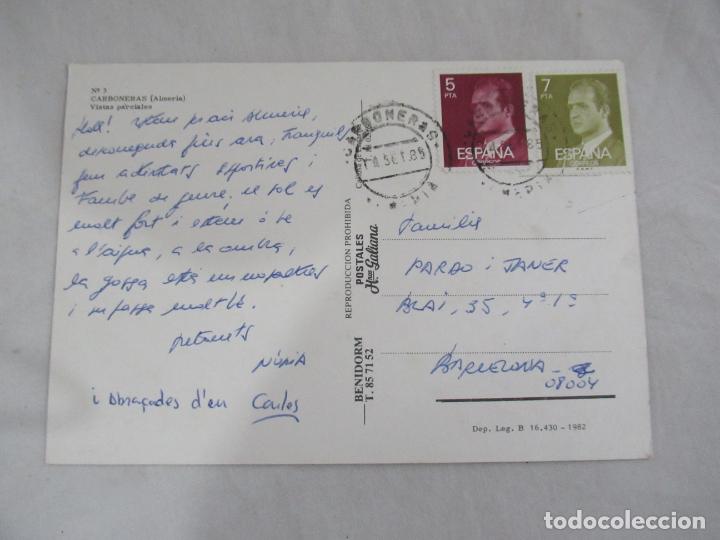 Nº 3
CARBONERAS (Almería)
Vistas parciales
Hola! Estem
ara, tranquil
fem activitats esportives i
També de gener, el sol és
molt fort i estem o bé
a l'aigua, a la ombra,
la gossa està amb nosaltres
i s'ho passa molt bé.
petonets
NÚRIA
i abraçades d'en Carles
REPRODUCCION PROHIBIDA
POSTALES
Hnos Galiana
BENIDORM
T. 85 71 52
CARBONERAS
SET.85
5
PTA
ESPAÑA
7
PTA
ESPAÑA
Familia
PARDO i JANER
BLAI, 35, 4º 1ª
BARCELONA
08004
Dep. Leg. B 16.430 - 1982
todocoleccion.net